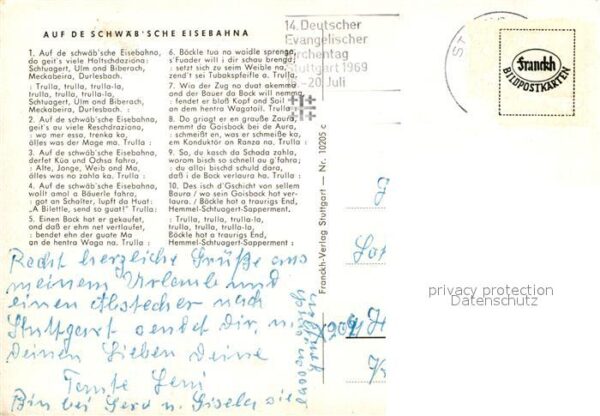 AUF DE SCHWÄB'SCHE EISEBAHNA
1. Auf de schwäb'sche Eisebahna,
do geit's viele Haltschdaziona:
Schtuagert, Ulm und Biberach,
Meckabeira, Durlesbach.
: Trulla, trulla, trulla-la,
trulla, trulla, trulla-la.
Schtuagert, Ulm und Biberach,
Meckabeira, Durlesbach. :
2. Auf de schwäb'sche Eisebahna,
geit's au viele Reschdraziona,
: wo mer essa, trenka ka,
älles was der Mage ma. Trulla :
3. Auf de schwäb'sche Eisebahna,
derfet Küa und Ochsa fahra,
: Alte, Jonge, Weib und Ma,
älles was no zahla ka. Trulla :
4. Auf de schwäb'sche Eisebahna,
wollt amol a Bäuerle fahra,
: got an Schalter, lupft da Huat:
„A Bilettle, send so guat!" Trulla:
5. Einen Bock hat er gekaufet,
ond daß er ehm net verlaufet,
: bendet ehn der guate Ma
an de hentra Waga na. Trulla :
6. Böckle tua no woidle sprenga,
s'Fuader will i dir schau brenga :
: setzt sich zu seim Weible na,
zend't sei Tubakspfeifle a. Trulla:
7. Wia der Zug no duat akemma
and der Bauer da Bock will nemma
: fendet er bloß Kopf and Soil
an dem hentra Wagatoil. Trulla:
8. Do griagt er en grauße Zaura,
nemmt da Goisbock bei de Aura,
: schmeißt en, was er schmeiße ka,
em Konduktör an Ranza na. Trulla :
9. So, du kasch da Schada zahla,
worom bisch so schnell au g'fahra :
: du allei bischd schuld dara,
daß i de Bock verlaura ha. Trulla :
10. Des isch d'Gschicht von sellem
Baura / wo sein Goisbock hot ver-
laura, / Böckle hot a traurigs End,
Hemmel-Schtuagert-Sapperment.
: Trulla, trulla, trulla-la,
trulla, trulla, trulla-la.
Böckle hot a traurigs End,
Hemmel-Schtuagert-Sapperment :
14. Deutscher
Evangelischer
Kirchentag
Stuttgart 1969
-20. Juli
Franckh
BILDPOSTKARTEN
Franckh-Verlag Stuttgart – Nr. 10205 c
Recht herzliche Grüße aus
meinem Urlaub und
einen Abstecher nach
Stuttgart sendet Dir, u.
Deinen Lieben Deine
Tante Leni
Bin bei Gerd u. Gisela sie
privacy protection
Datenschutz